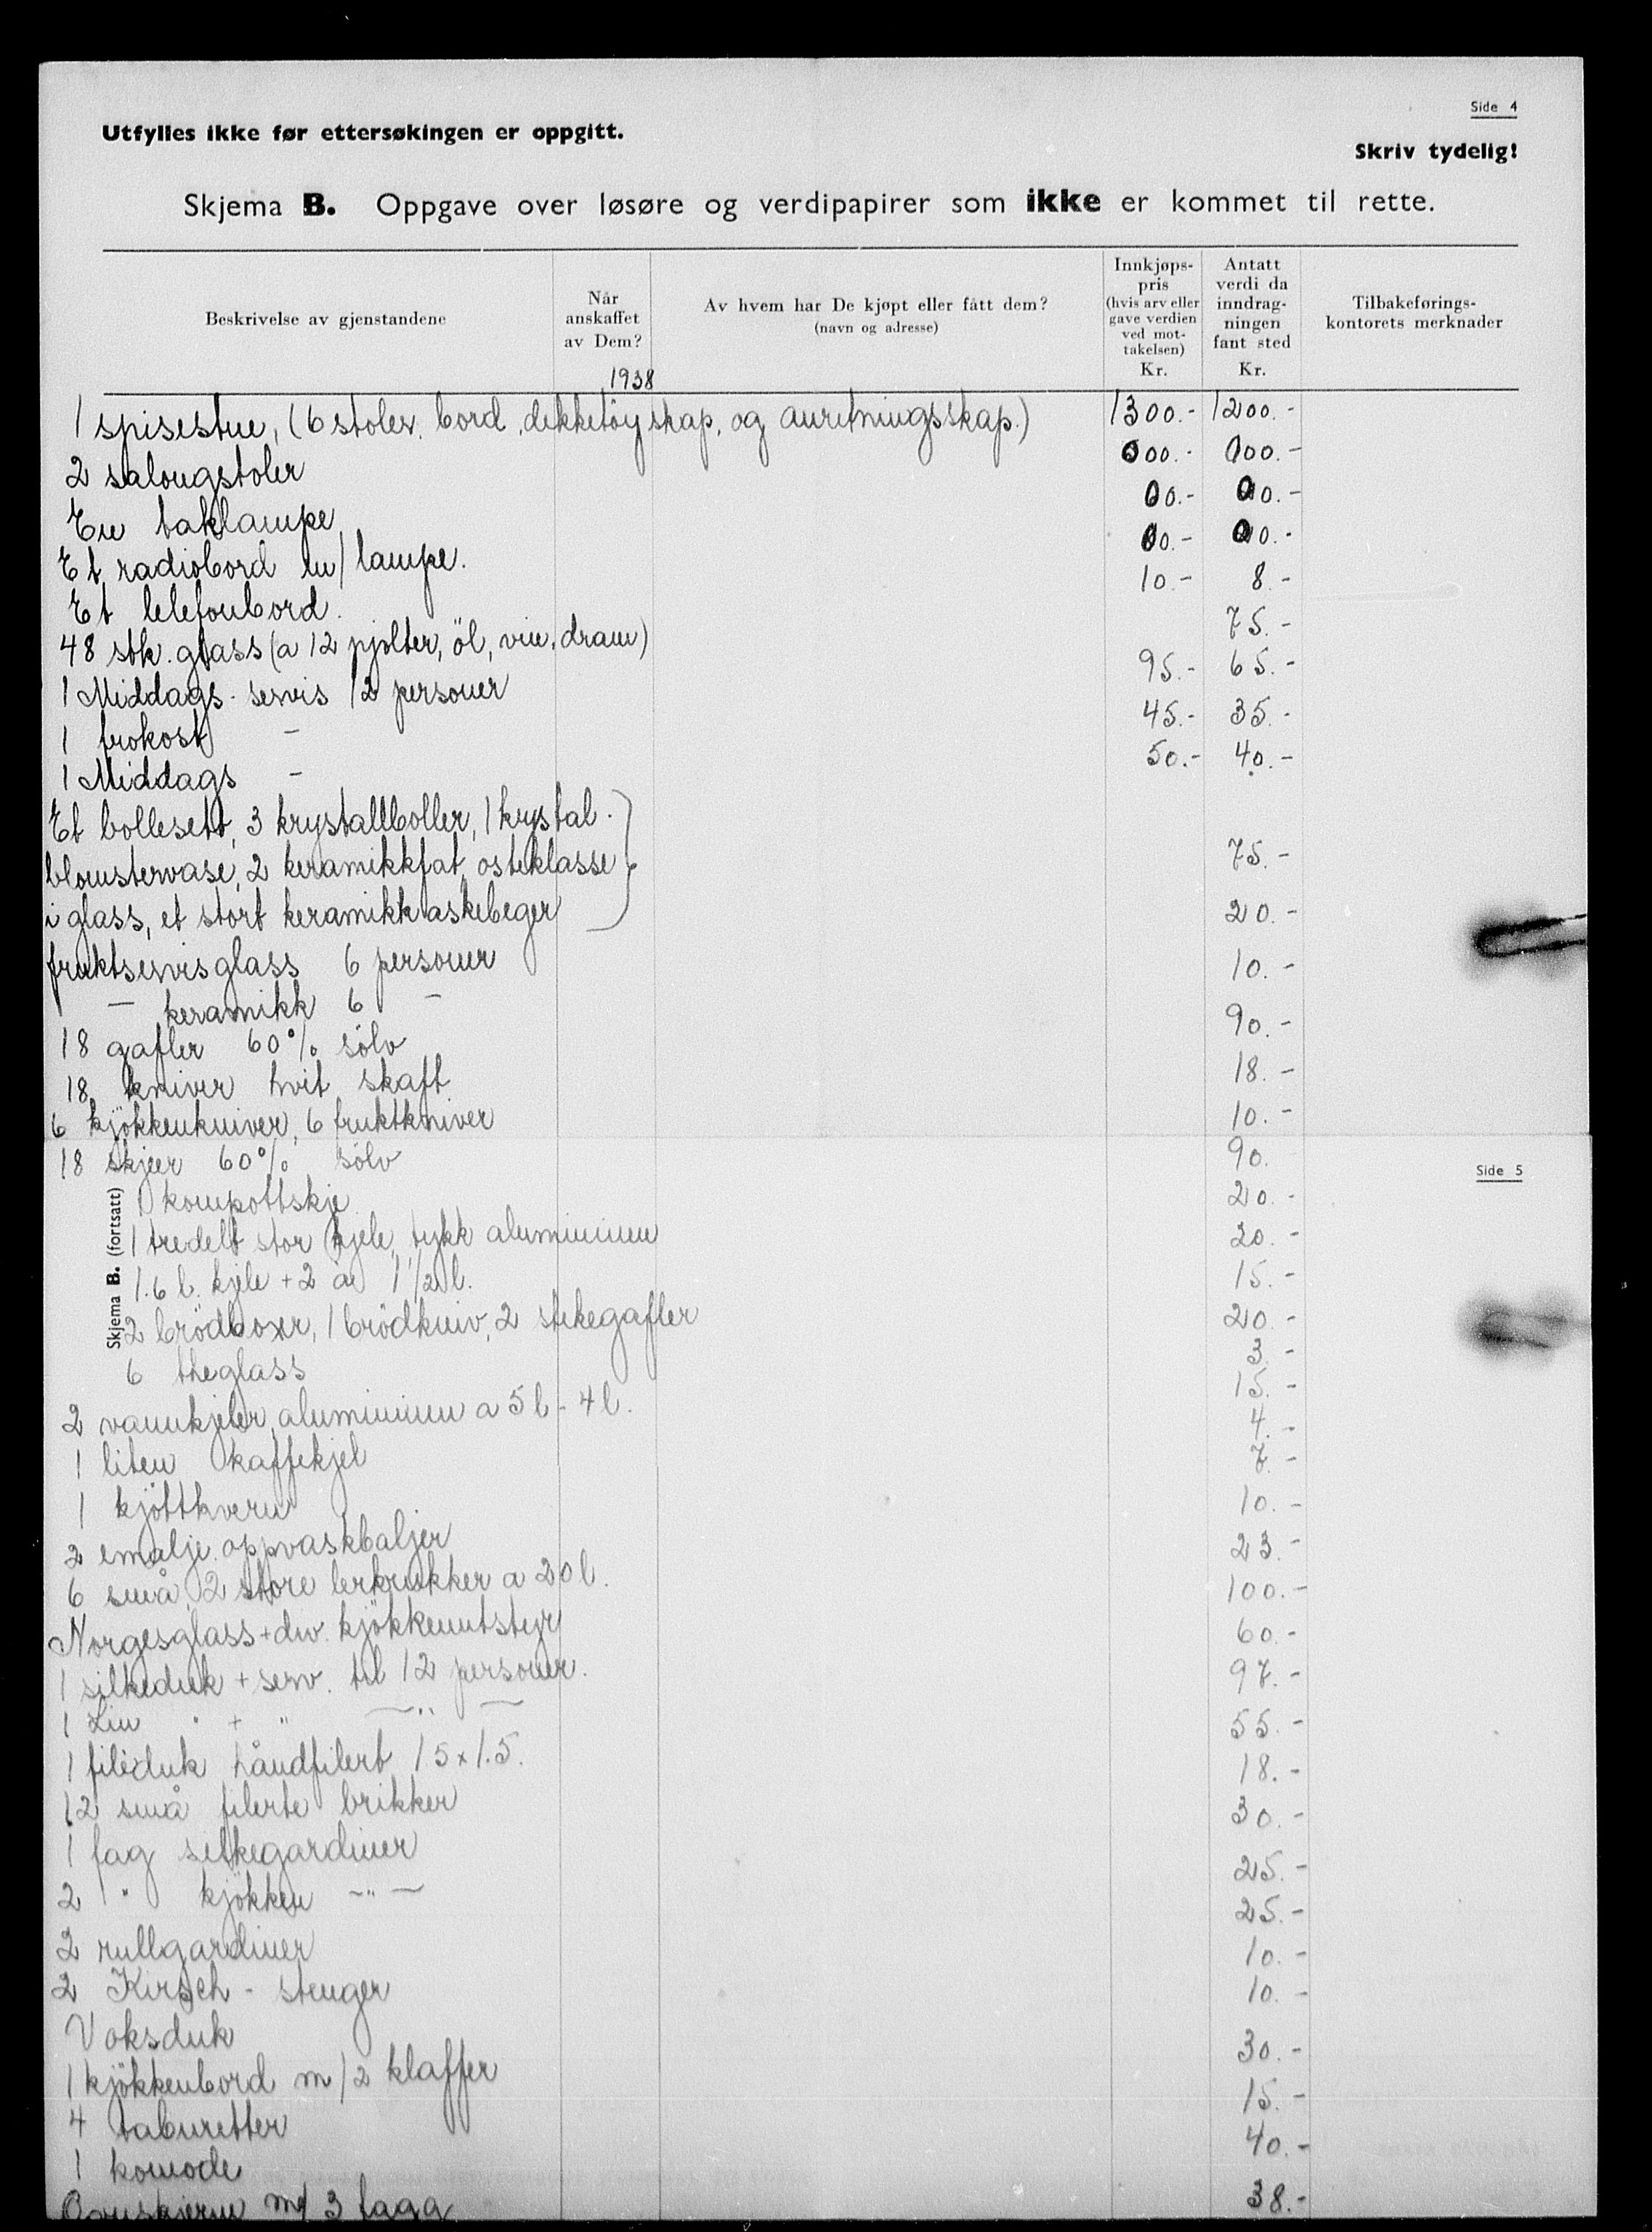 Side 4
Utfylles ikke før ettersøkingen er oppgitt.
Skriv tydelig!
Skjema B. Oppgave over løsøre og verdipapirer som ikke er kommet til rette.
Beskrivelse av gjenstandene
Når anskaffet av Dem?
Av hvem har De kjøpt eller fått dem? (navn og adresse)
Innkjøps-pris (hvis arv eller gave verdien ved mot-takelsen) Kr.
Antatt verdi da inndrag-ningen fant sted Kr.
Tilbakeførings-kontorets merknader
1938
1 spisestue, (6 stoler. bord, dekketöyskap, og anretningsskap.) 1300.- 1200.-
2 salongstoler 00.- 00.-
En taklampe 0.- 0.-
Et radiobord m/lampe. 0.- 0.-
Et telefonbord. 10.- 8.-
48 stk. glass (a 12 pjolter, öl, vin, dram) 75.-
1 Middags-servis 12 personer 95.- 65.-
1 frokost - 45.- 35.-
1 Middags - 50.- 40.-
Et bollesett, 3 krystallboller, 1 krystal.
blomstervase, 2 keramikkfat, osteklasse 75.-
i glass, et stort keramikk askebeger
fruktservis glass 6 personer 20.-
- keramikk 6 - 10.-
18 gafler 60% sölv 90.-
18 kniver hvit skaft 18.-
6 kjökkenkniver, 6 fruktkniver 10.-
18 skjeer 60% sölv 90.-
Side 5
Skjema B. (fortsatt)
1 kompottskje 20.-
1 tredelt stor kjele, tykk aluminium 20.-
1.6 l. kjele + 2 a 1 1/2 l. 15.-
2 brödboxer, 1 brödkniv, 2 stekegafler 20.-
6 theglass 3.-
2 vannkjeler, aluminium a 5 l - 4 l. 15.-
1 liten kaffekjel 4.-
1 kjöttkvern 7.-
2 emalje. oppvaskbaljer 10.-
6 små, 2 store lerkrukker a 20 l. 23.-
Norgesglass + div. kjökkenutstyr 100.-
1 silkeduk + serv. til 12 personer. 60.-
1 Lin " + " - " - 97.-
1 filéduk håndfilert 1.5 x 1.5. 55.-
12 små filerte brikker 18.-
1 fag silkegardiner 30.-
2 " kjökken - " - 25.-
2 rullgardiner 25.-
2 Kirsch - stenger 10.-
Voksduk 10.-
1 kjökkenbord m/2 klaffer 30.-
4 taburetter 15.-
1 komode 40.-
m/ 3 fagg 38.-